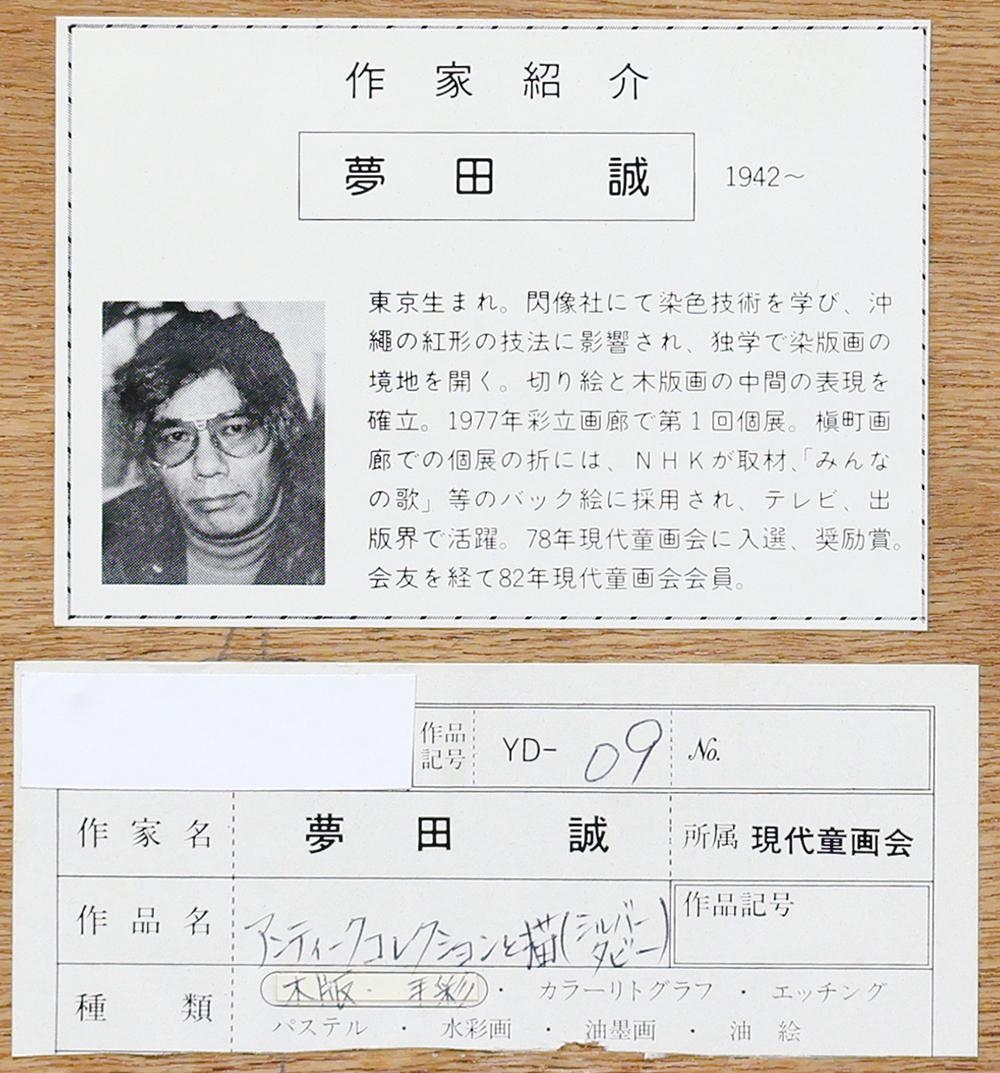 作家紹介
夢田 誠 1942～
東京生まれ。閃像社にて染色技術を学び、沖
繩の紅形の技法に影響され、独学で染版画の
境地を開く。切り絵と木版画の中間の表現を
確立。1977年彩立画廊で第1回個展。槇町画
廊での個展の折には、NHKが取材、「みんな
の歌」等のバック絵に採用され、テレビ、出
版界で活躍。78年現代童画会に入選、奨励賞。
会友を経て82年現代童画会会員。
作品記号 YD-09 No.
作家名 夢田 誠 所属 現代童画会
作品名 アンティークコレクションと猫(シルバータビー) 作品記号
種類 木版・手彩・カラーリトグラフ・エッチング
パステル・水彩画・油墨画・油絵